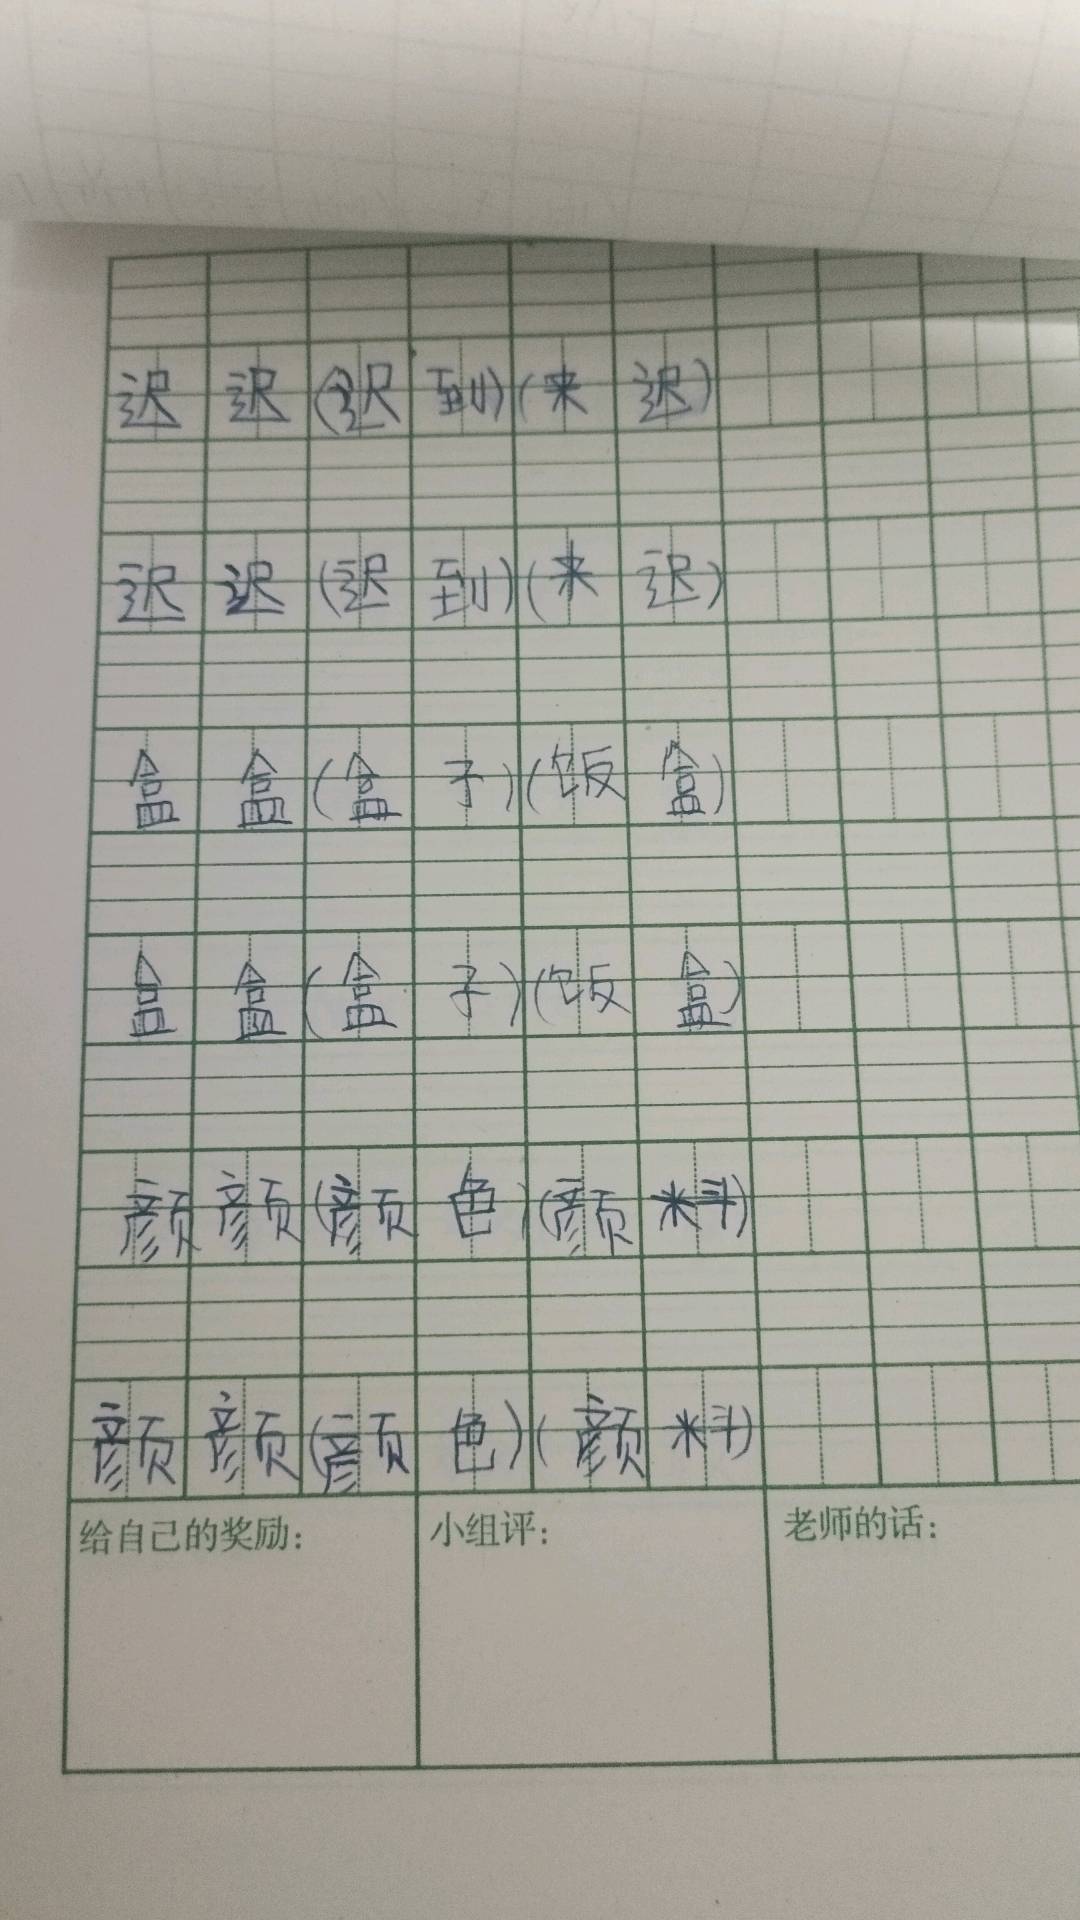 迟 迟 (迟 到) (来 迟)
迟 迟 (迟 到) (来 迟)
盒 盒 (盒 子) (饭 盒)
盒 盒 (盒 子) (饭 盒)
颜 颜 (颜 色) (颜 料)
颜 颜 (颜 色) (颜 料)
给自己的奖励: 小组评: 老师的话: